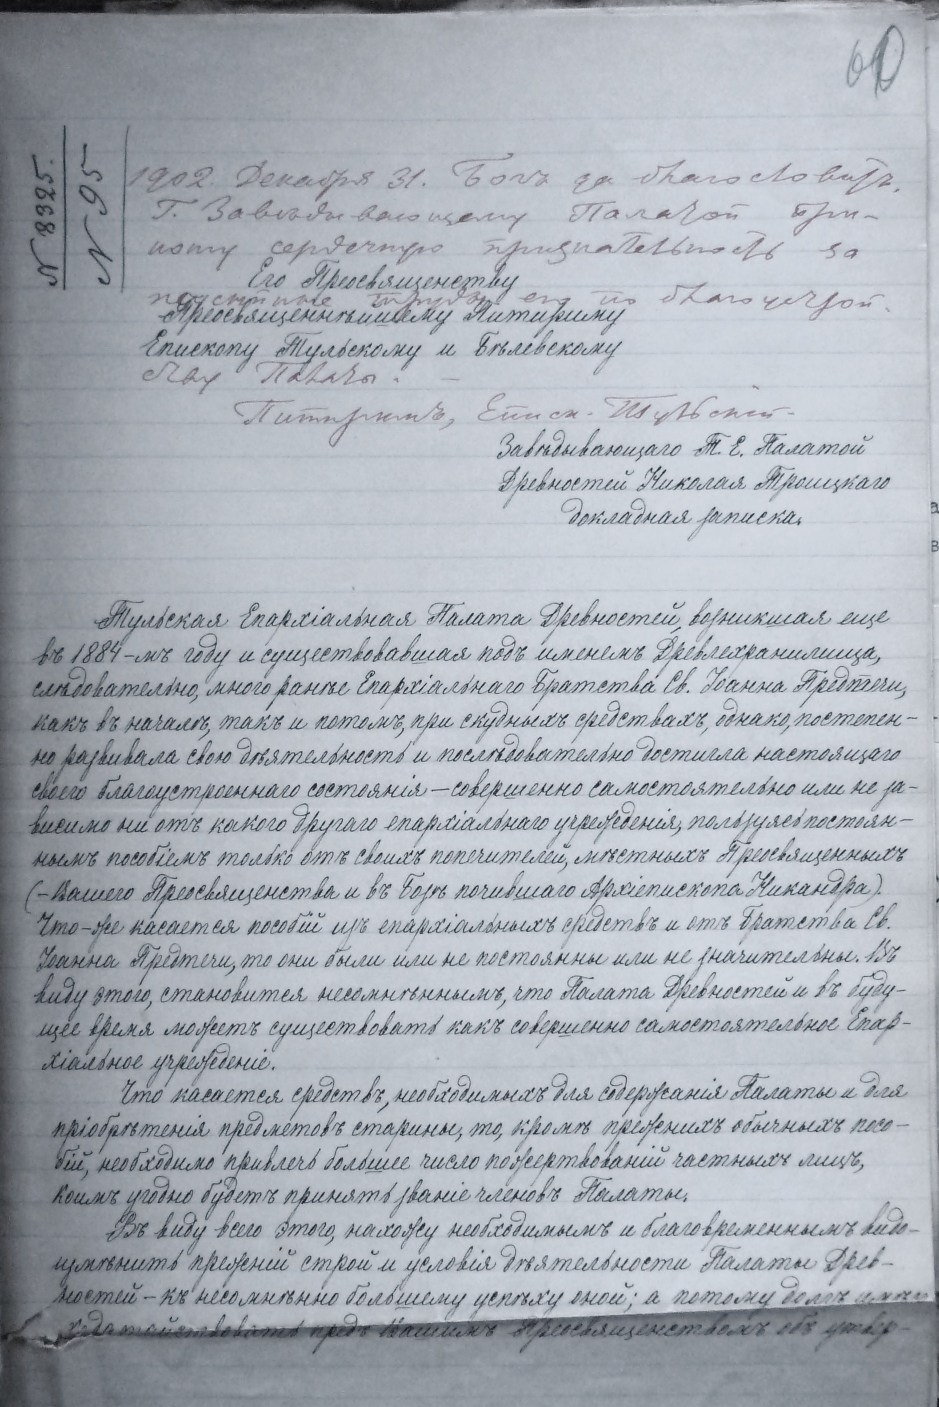 60
№ 8325.
№ 95
1902. Декабря 31. Богъ да благословитъ.
Г. Завѣдывающему Палатой при-
ношу сердечную признательность за
Его Преосвященству
труды его по благоустрой-
Преосвященнѣйшему Питириму
Епископу Тульскому и Бѣлевскому
ству Палаты. —
Питиримъ, Еписк. Тульскій.
Завѣдывающаго Т. Е. Палатой
Древностей Николая Троицкаго
докладная записка.
Тульская Епархіальная Палата Древностей, возникшая еще
въ 1884-мъ году и существовавшая подъ именемъ Древлехранилища,
слѣдовательно, много ранѣе Епархіальнаго Братства Св. Іоанна Предтечи,
какъ въ началѣ, такъ и потомъ, при скудныхъ средствахъ, однако, постепен-
но развивала свою дѣятельность и послѣдовательно достигла настоящаго
своего благоустроеннаго состоянія — совершенно самостоятельно или не за-
висимо ни отъ какого другаго епархіальнаго учрежденія, пользуясь постоян-
нымъ пособіемъ только отъ своихъ попечителей, мѣстныхъ Преосвященныхъ
(– Вашего Преосвященства и въ Бозѣ почившаго Архіепископа Никандра).
Что-же касается пособій изъ епархіальныхъ средствъ и отъ Братства Св.
Іоанна Предтечи, то они были или не постоянны или не значительны. Въ
виду этого, становится несомнѣннымъ, что Палата Древностей и въ буду-
щее время можетъ существовать какъ совершенно самостоятельное Епар-
хіальное учрежденіе.
Что касается средствъ, необходимыхъ для содержанія Палаты и для
пріобрѣтенія предметовъ старины, то, кромѣ прежнихъ обычныхъ посо-
бій, необходимо привлечь большее число пожертвованій частныхъ лицъ,
коимъ угодно будетъ принять званіе членовъ Палаты.
Въ виду всего этого, нахожу необходимымъ и благовременнымъ видо-
измѣнить прежній строй и условія дѣятельности Палаты Древ-
ностей — къ несомнѣнно большему успѣху оной; а потому долгъ имѣю
ходатайствовать предъ Вашимъ Преосвященствомъ объ утвер-